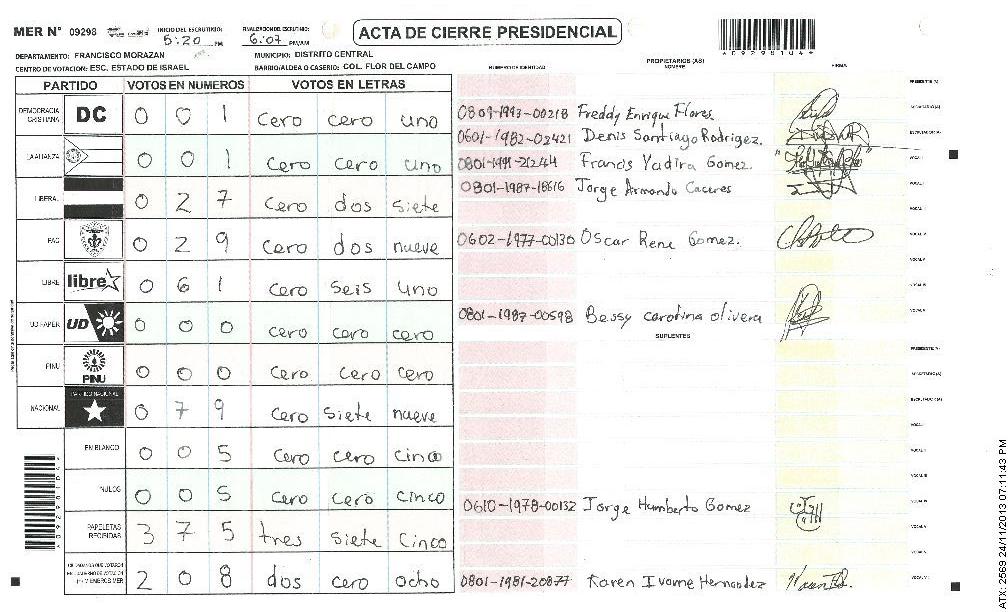 MER N° 09298 INICIO DEL ESCRUTINIO: 5:20 PM FINALIZACION DEL ESCRUTINIO: 6:07 PM/AM ACTA DE CIERRE PRESIDENCIAL
DEPARTAMENTO: FRANCISCO MORAZAN MUNICIPIO: DISTRITO CENTRAL
CENTRO DE VOTACION: ESC. ESTADO DE ISRAEL BARRIO/ALDEA O CASERIO: COL. FLOR DEL CAMPO
NUMERO DE IDENTIDAD PROPIETARIOS (AS) NOMBRE FIRMA
PARTIDO VOTOS EN NUMEROS VOTOS EN LETRAS
DEMOCRACIA CRISTIANA DC 0 0 1 cero cero uno
LA ALIANZA 0 0 1 cero cero uno
LIBERAL 0 2 7 cero dos siete
PAC 0 2 9 cero dos nueve
LIBRE libre 0 6 1 cero seis uno
UD FAPER UD 0 0 0 cero cero cero
PINU PINU 0 0 0 cero cero cero
NACIONAL PARTIDO NACIONAL 0 7 9 cero siete nueve
EN BLANCO 0 0 5 cero cero cinco
NULOS 0 0 5 cero cero cinco
PAPELETAS RECIBIDAS 3 7 5 tres siete cinco
2 0 8 dos cero ocho
0809-1993-00218 Freddy Enrique Flores.
0601-1982-02421 Denis Santiago Rodrigez.
0801-1991-21244 Francis Yadira Gomez.
0801-1987-18616 Jorge Armando Caceres
0602-1977-00130 Oscar Rene Gomez.
0801-1987-00598 Bessy carolina olivera
SUPLENTES
0610-1978-00132 Jorge Humberto Gomez
0801-1981-20877 Karen Ivonne Hernandez
ATX-2569 24/11/2013 07:11:43 PM